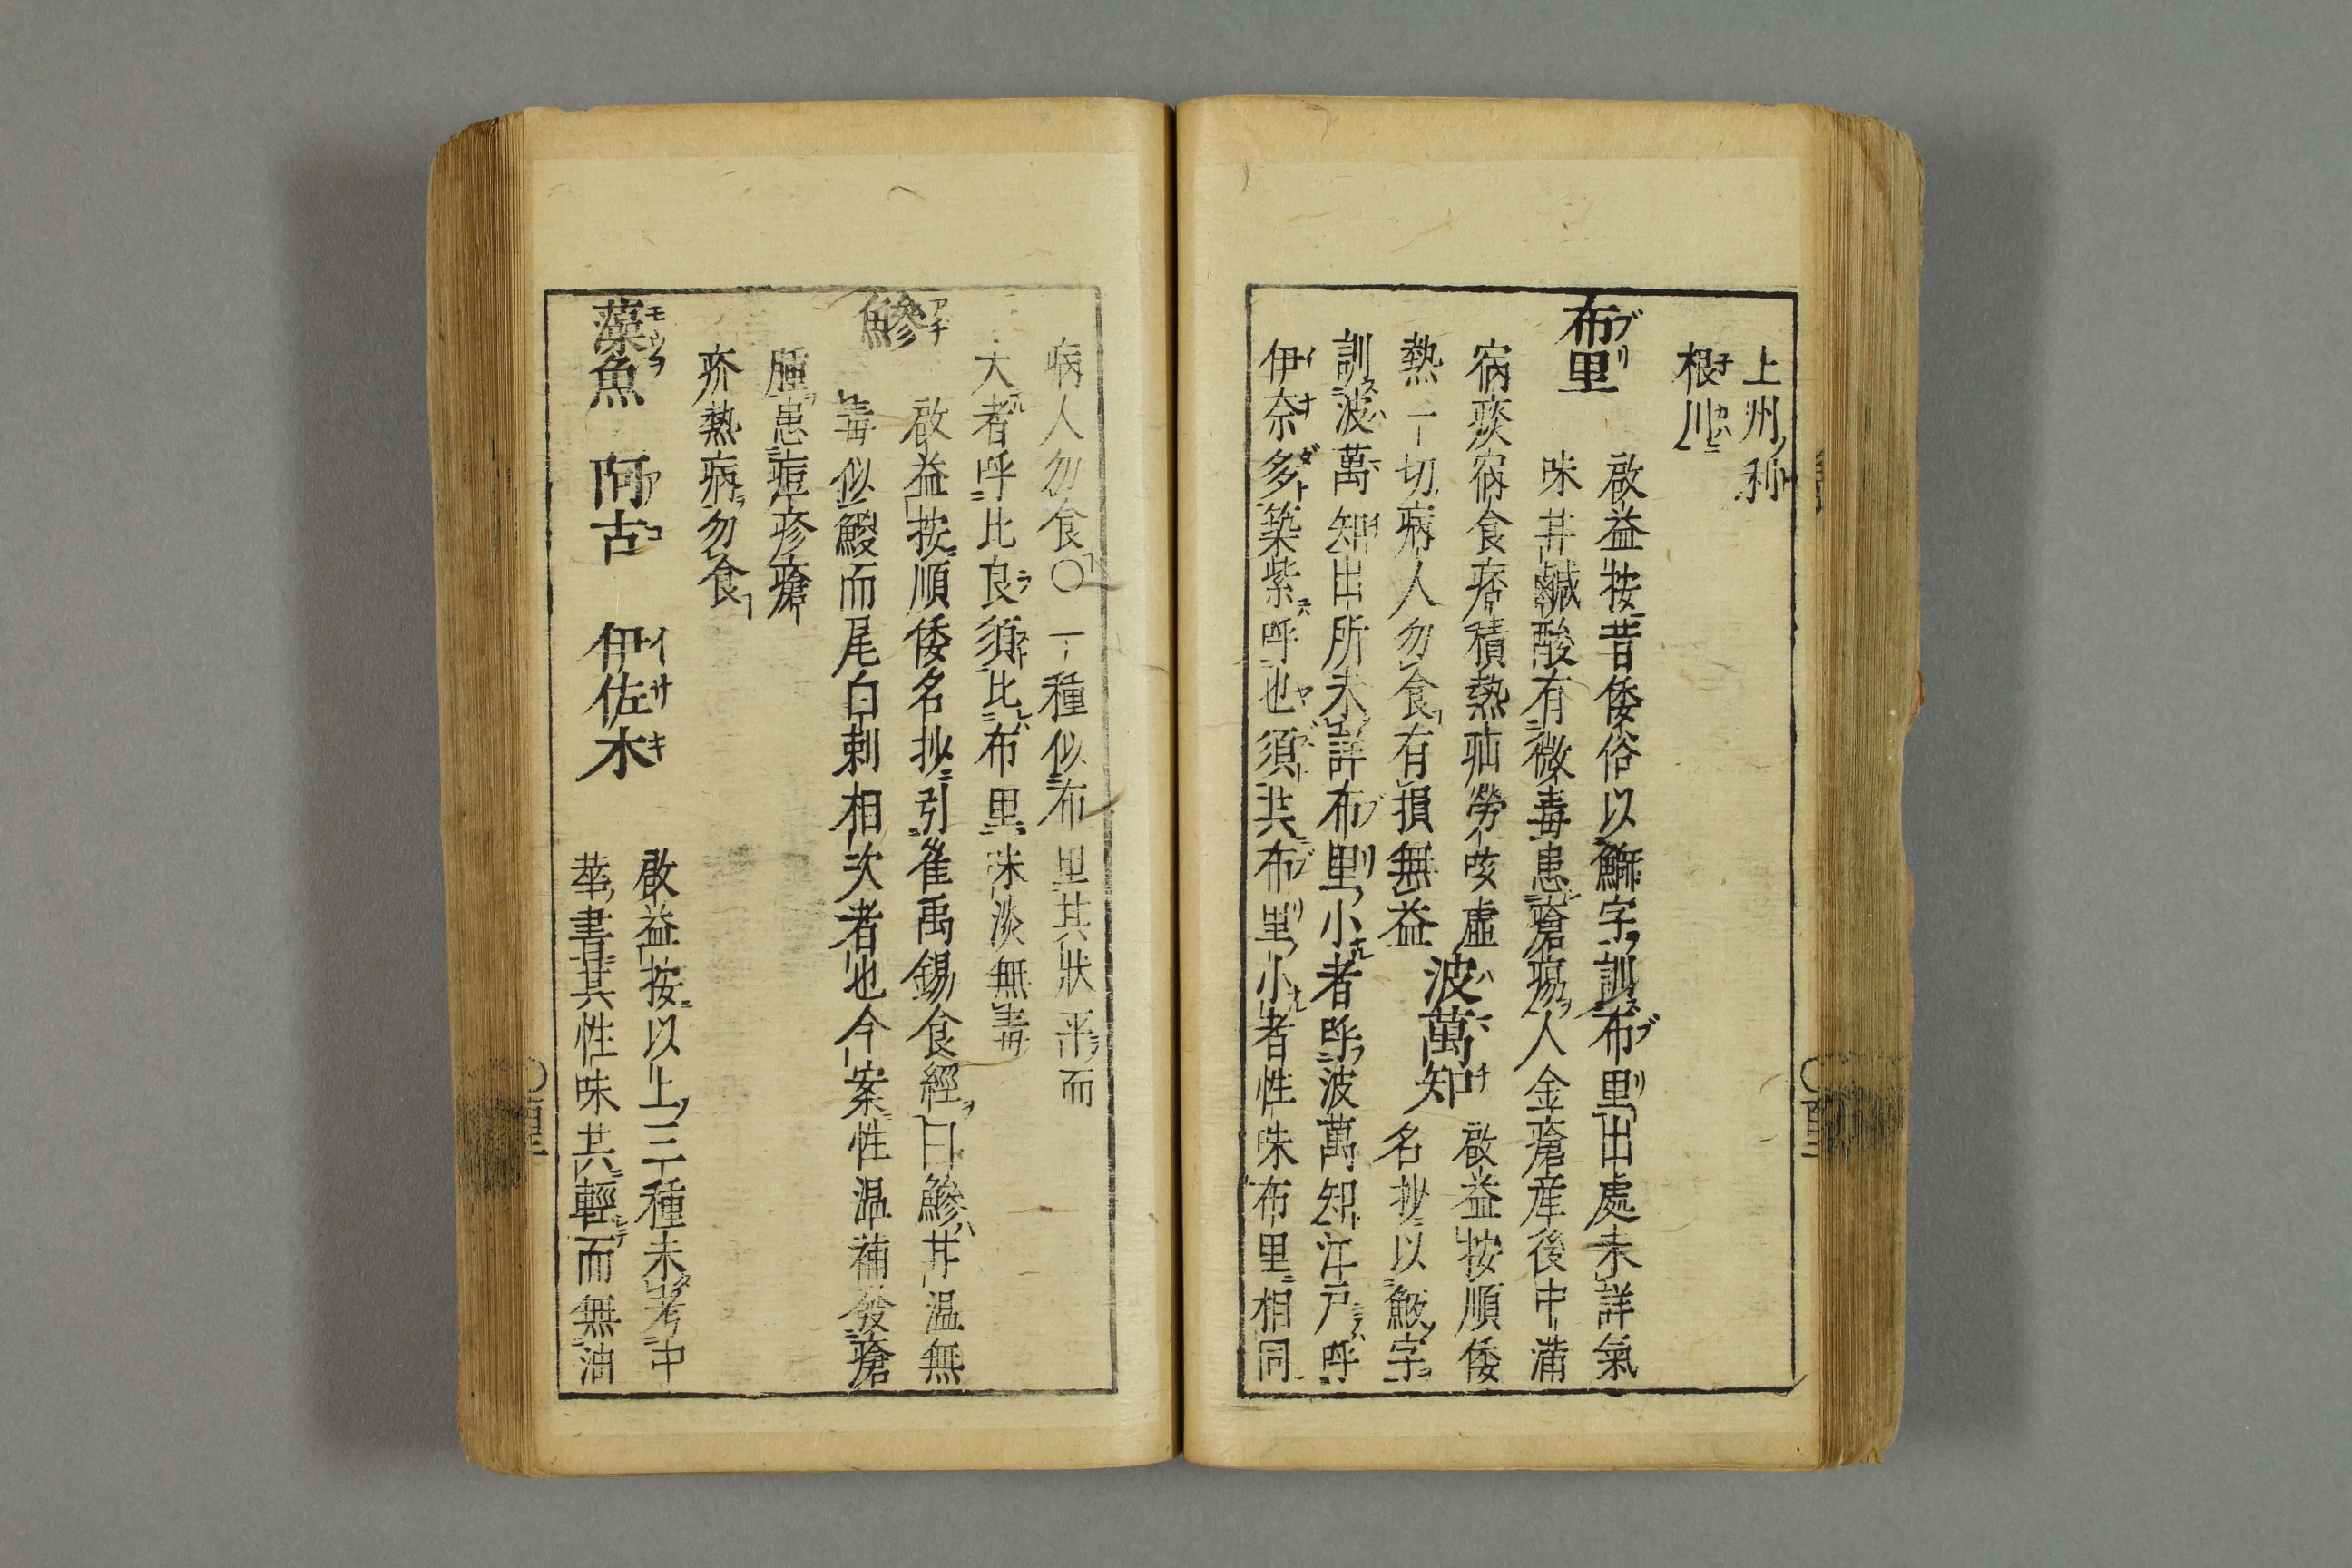 上州利
根川
布里
啟益按昔倭俗以鰤字訓布里出處未詳氣
味甘鹹酸有微毒患瘡瘍人金瘡産後中滿
病痰病食瘩積熱疝勞咳虛
熱一切病人勿食有損無益
波萬知
啟益按順倭
名抄以魬字
訓波萬知出所未詳布里小者呼波萬知江戸呼
伊奈多築紫呼也須共布里小者性味布里相同
病人勿食○一種似布里其狀平而
大者呼比良須比布里味淡無毒
鰺
啟益按順倭名抄引崔禹錫食經曰鰺甘温無
毒似鯼而尾白刺相次者也今案性温補發瘡
腫患痘疹瘡
疥熱病勿食
藻魚 阿古 伊佐木
啟益按以上三種未考中
華書其性味共輕而無油